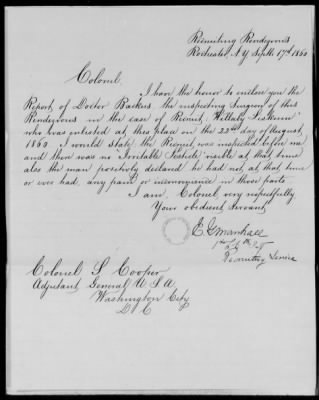 Recruiting Rendezvous
Rochester, N.Y. Sept 17th 1860
Colonel,
I have the honor to enclose you the
Report of Doctor Backus, the inspecting Surgeon of this
Rendezvous in the case of Recruit,
who was enlisted at this place on the 22nd day of August
1860. I would state the Recruit was inspected before me
and there was no "Irritable Testicle" visible at that time
also the man positively declared he had not, at that time
or ever had, any pain or inconvenience in those parts
I am Colonel, very respectfully
Your obedient Servant
E G Marshall
Recruiting Service
Colonel S. Cooper
Adjutant General U.S.A
Washington City
D.C